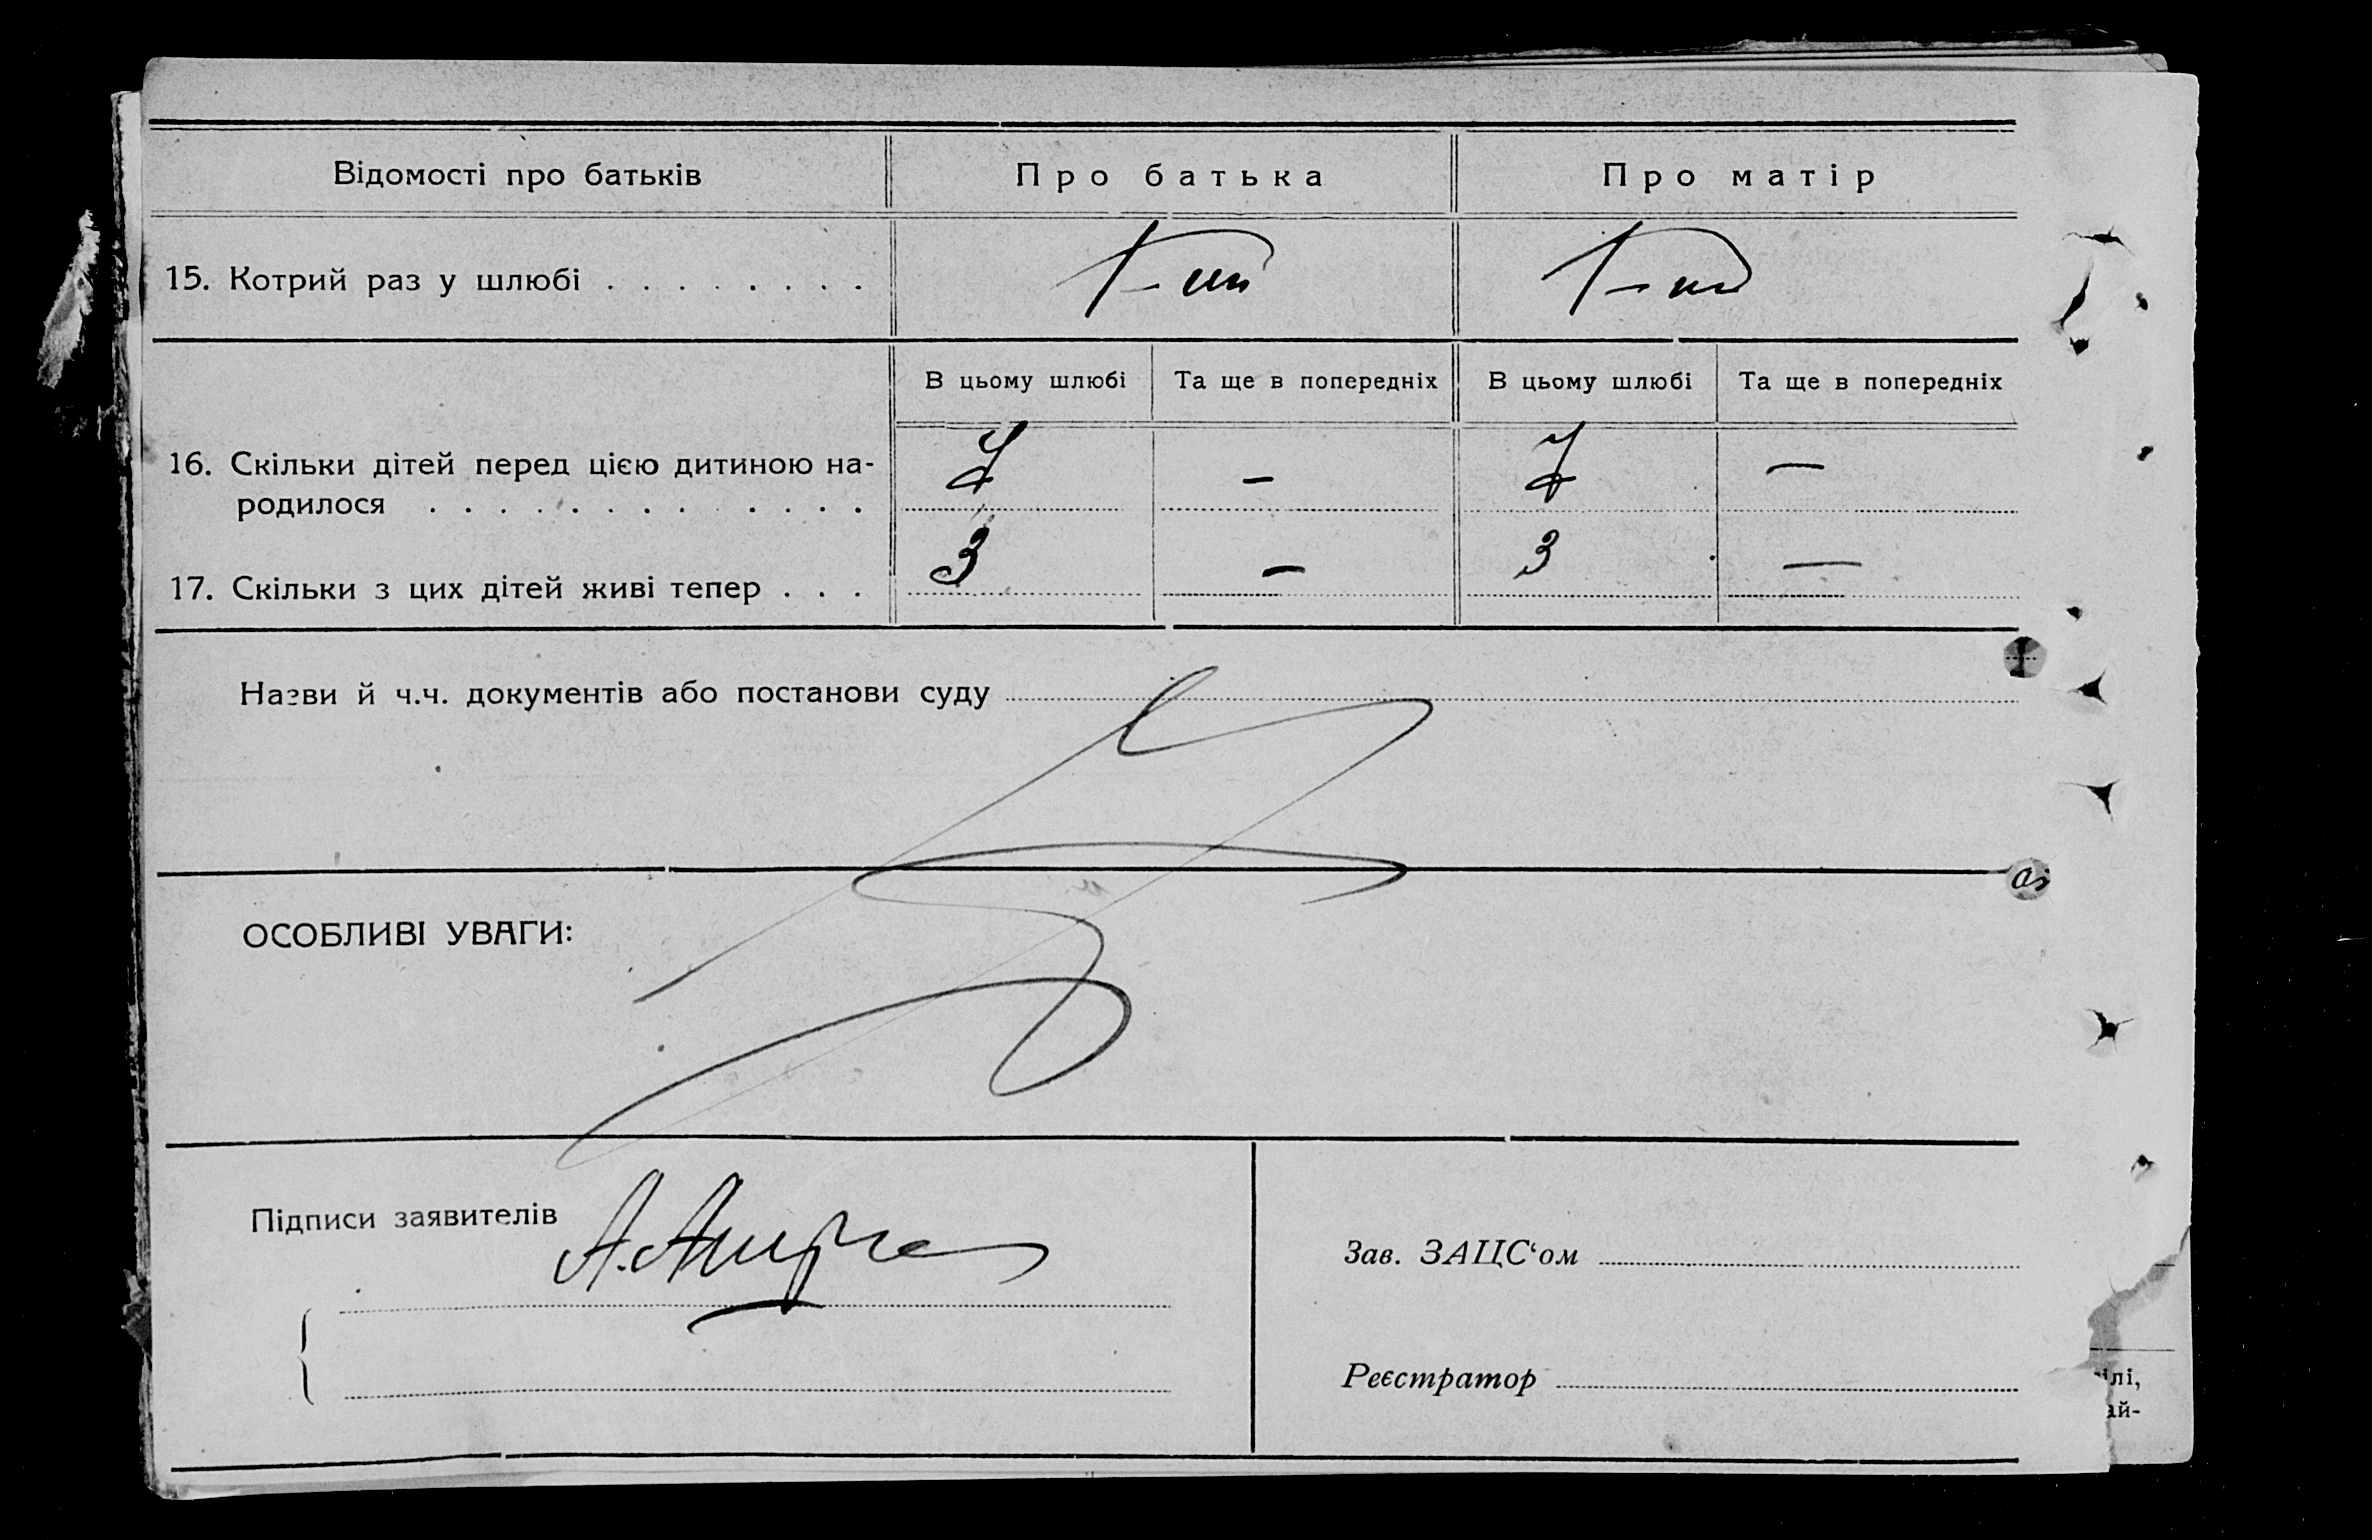 Відомості про батьків Про батька Про матір
15. Котрий раз у шлюбі . . . . . . . . 1-ий 1-ий
В цьому шлюбі Та ще в попередніх В цьому шлюбі Та ще в попередніх
16. Скільки дітей перед цією дитиною на-
родилося . . . . . . . . . . . . . – –
17. Скільки з цих дітей живі тепер . . . 3 – 3 –
Назви й ч.ч. документів або постанови суду
ОСОБЛИВІ УВАГИ:
Підписи заявителів
Зав. ЗАЦС‘ом
Реєстратор
ілі,
ай-